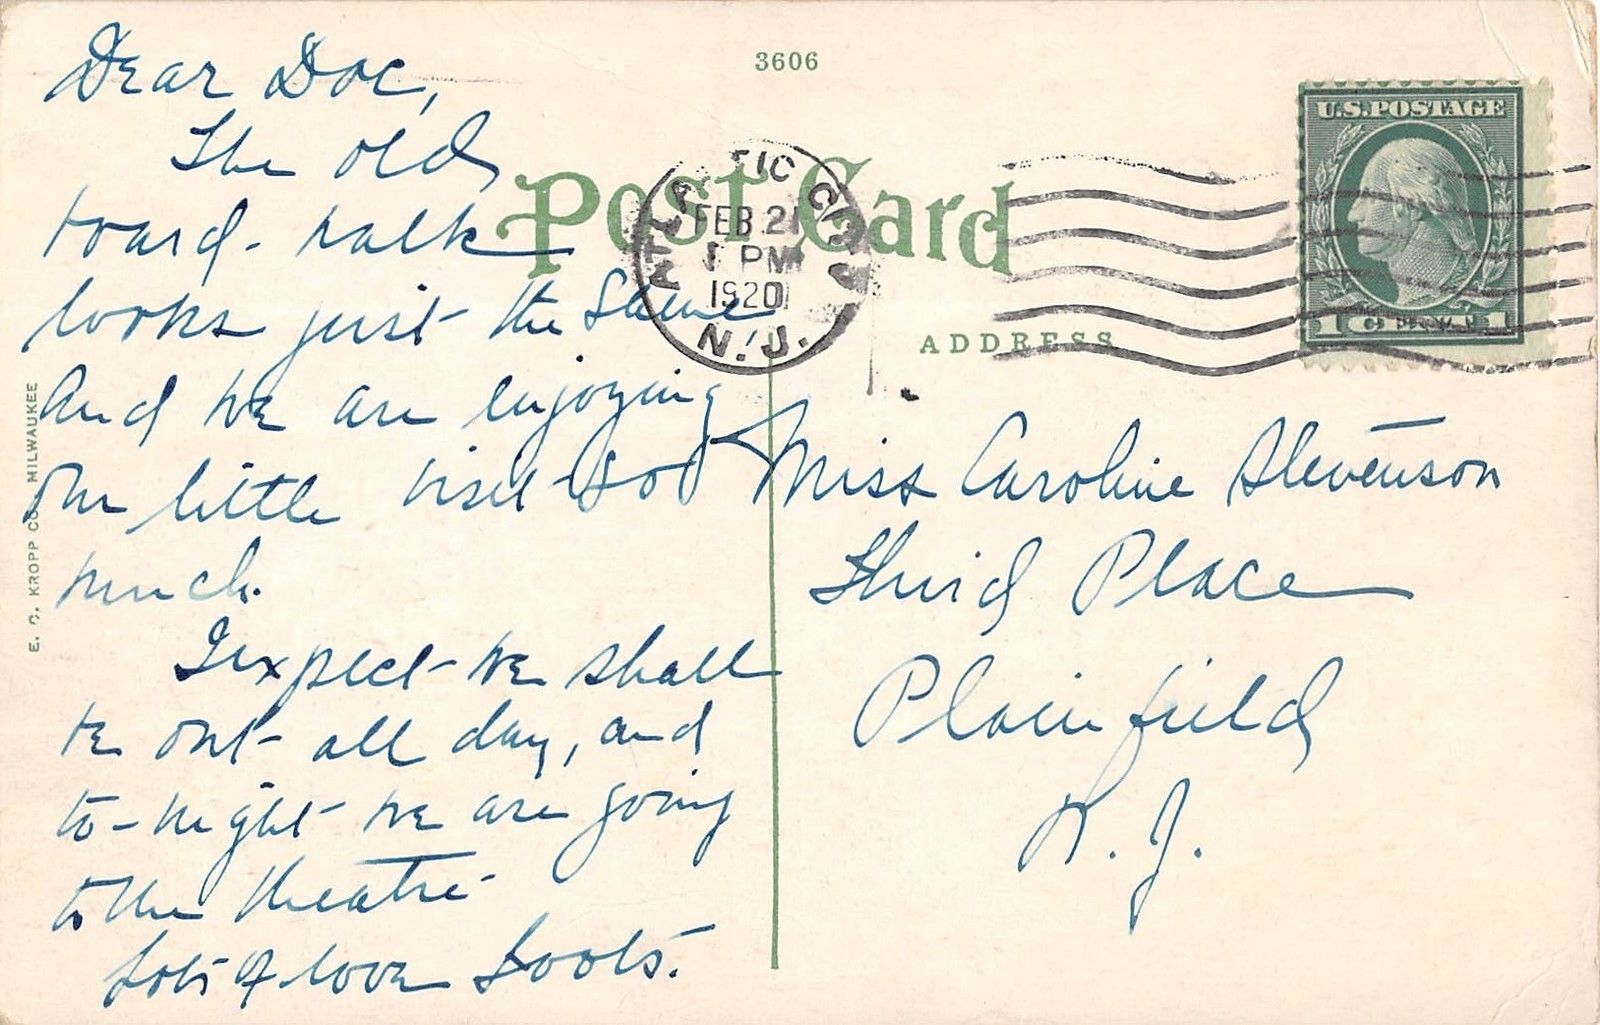 3606
Post Card
ATLANTIC CITY
FEB 21
PM
1920
N.J.
U.S.POSTAGE
1 CENT 1
ADDRESS
E. C. KROPP CO. MILWAUKEE
Dear Doc,
The old
board-walk
looks just the same
and we are enjoying
our little visit so
much.
I expect we shall
be out all day, and
to-night we are going
to the theatre
Lots of love
Miss Caroline Stevenson
Third Place
Plainfield
N.J.